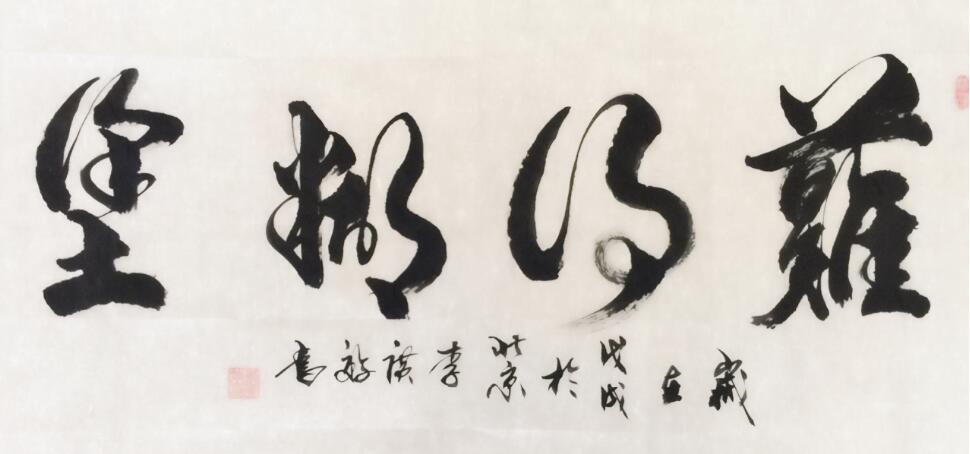 難得糊塗
歲在戊戌於北京李

書